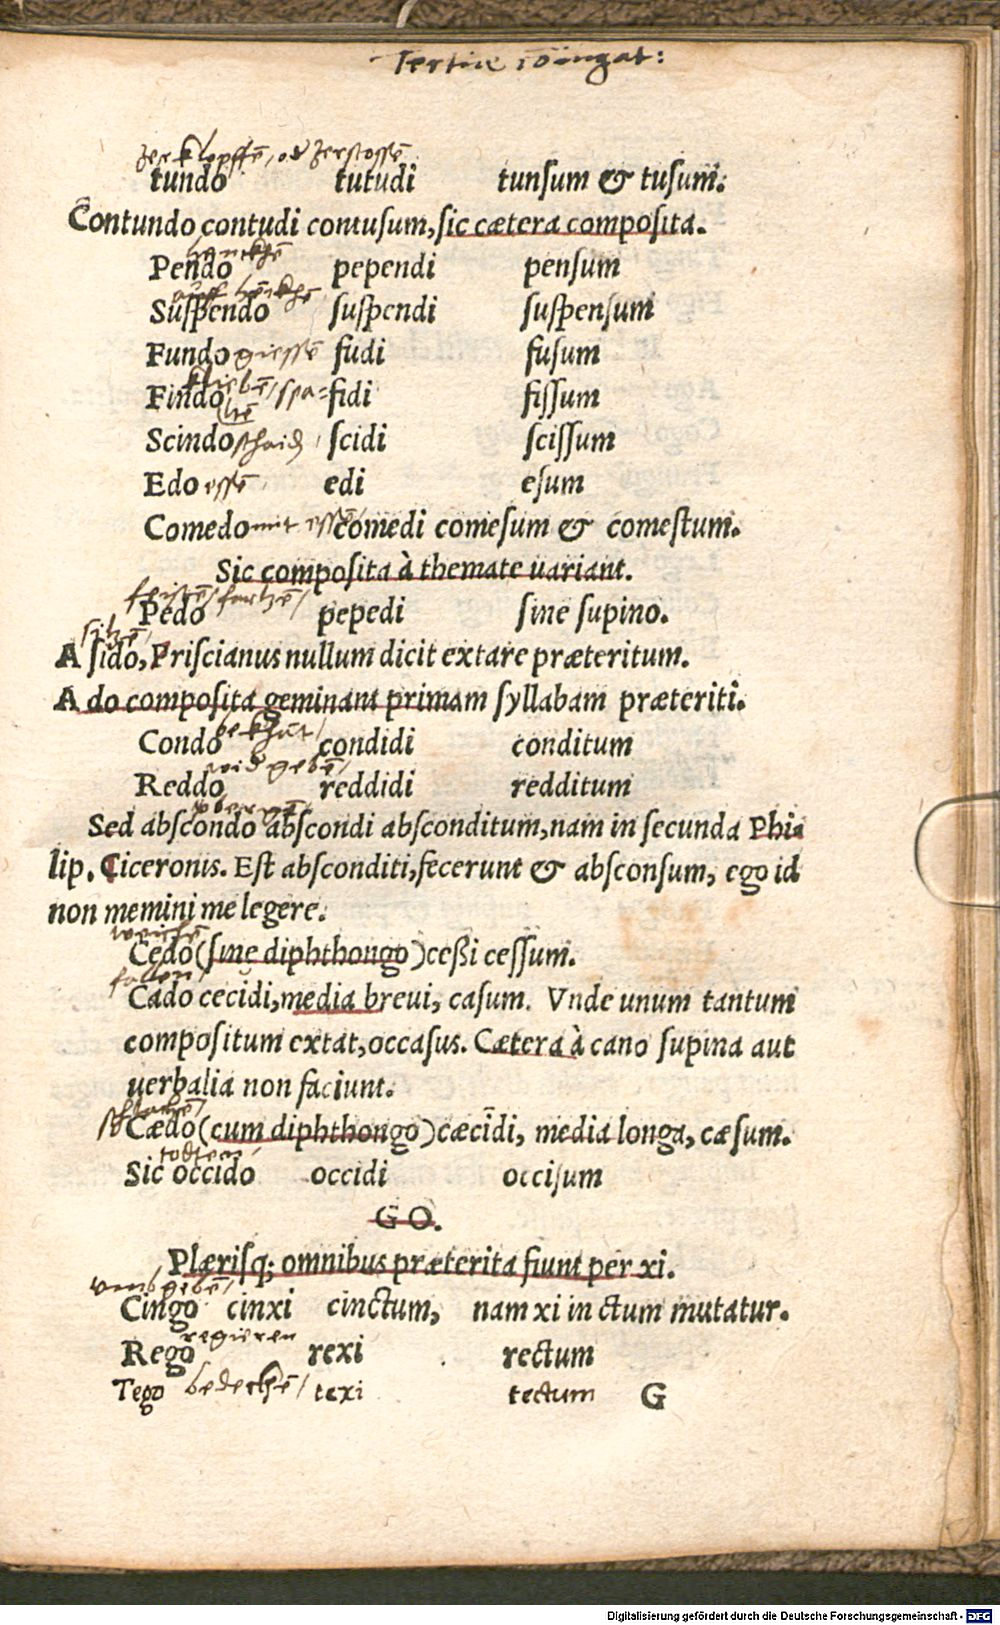 Tertiae
zerklopffē, od zerstossē
tundo tutudi tunſum & tuſum.
Contundo contudi contuſum, ſic cætera compoſita.
henckhē
Pendo pependi penſum
auff henckhē
Suſpendo ſuſpendi ſuſpenſum
Fundo giessē fudi fuſum
kliebē / spa=
Findo fidi fiſſum
ltē
Scindo schaid scidi ſciſſum
Edo essē edi eſum
Comedo mit essē comedi comeſum & comeſtum.
Sic compoſita à themate uariant.
feistē / fartzē /
Pedo pepedi ſine ſupino.
sitzē /
A ſido, Priſcianus nullum dicit extare præteritum.
A do compoſita geminant primam ſyllabam præteriti.
Condo condidi conditum
wid gebē /
Reddo reddidi redditum
Sed abſcondo abſcondi abſconditum, nam in ſecunda Phi-
lip. Ciceronis. Eſt abſconditi, fecerunt & abſconſum, ego id
non memini me legere.
weichē
Cedo (ſine diphthongo) ceßi ceſſum.
fallen /
Cado cecidi, media breui, caſum. Vnde unum tantum
compoſitum extat, occaſus. Cætera à cano ſupina aut
uerbalia non faciunt.
schlahē /
Cædo (cum diphthongo) cæcidi, media longa, cæſum.
todten /
Sic occido occidi occiſum
GO.
Plæriſq; omnibus præterita fiunt per xi.
vmbgebē /
Cingo cinxi cinctum, nam xi in ctum mutatur.
regieren
Rego rexi rectum
Tego bedeckhē / texi tectum G
Digitalisierung gefördert durch die Deutsche Forschungsgemeinschaft - DFG